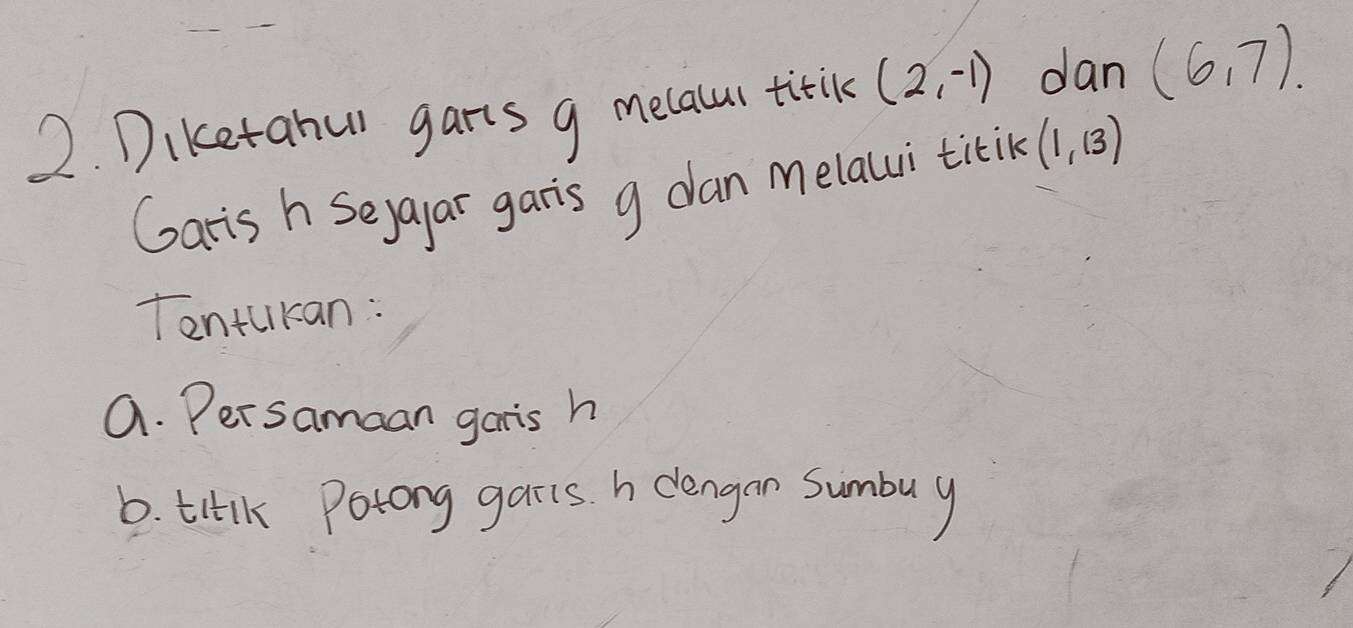 2. Diketahui garis g melalui titik (2,-1) dan (6,7).
Garis h sejajar garis g dan melalui titik (1,13)
Tentukan:
a. Persamaan garis h
b. titik Potong garis. h dengan Sumbu y